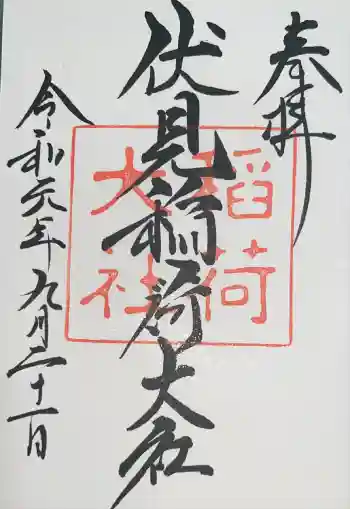 奉拝
伏見稲荷大社
稲荷
大社
令和元年九月二十一日